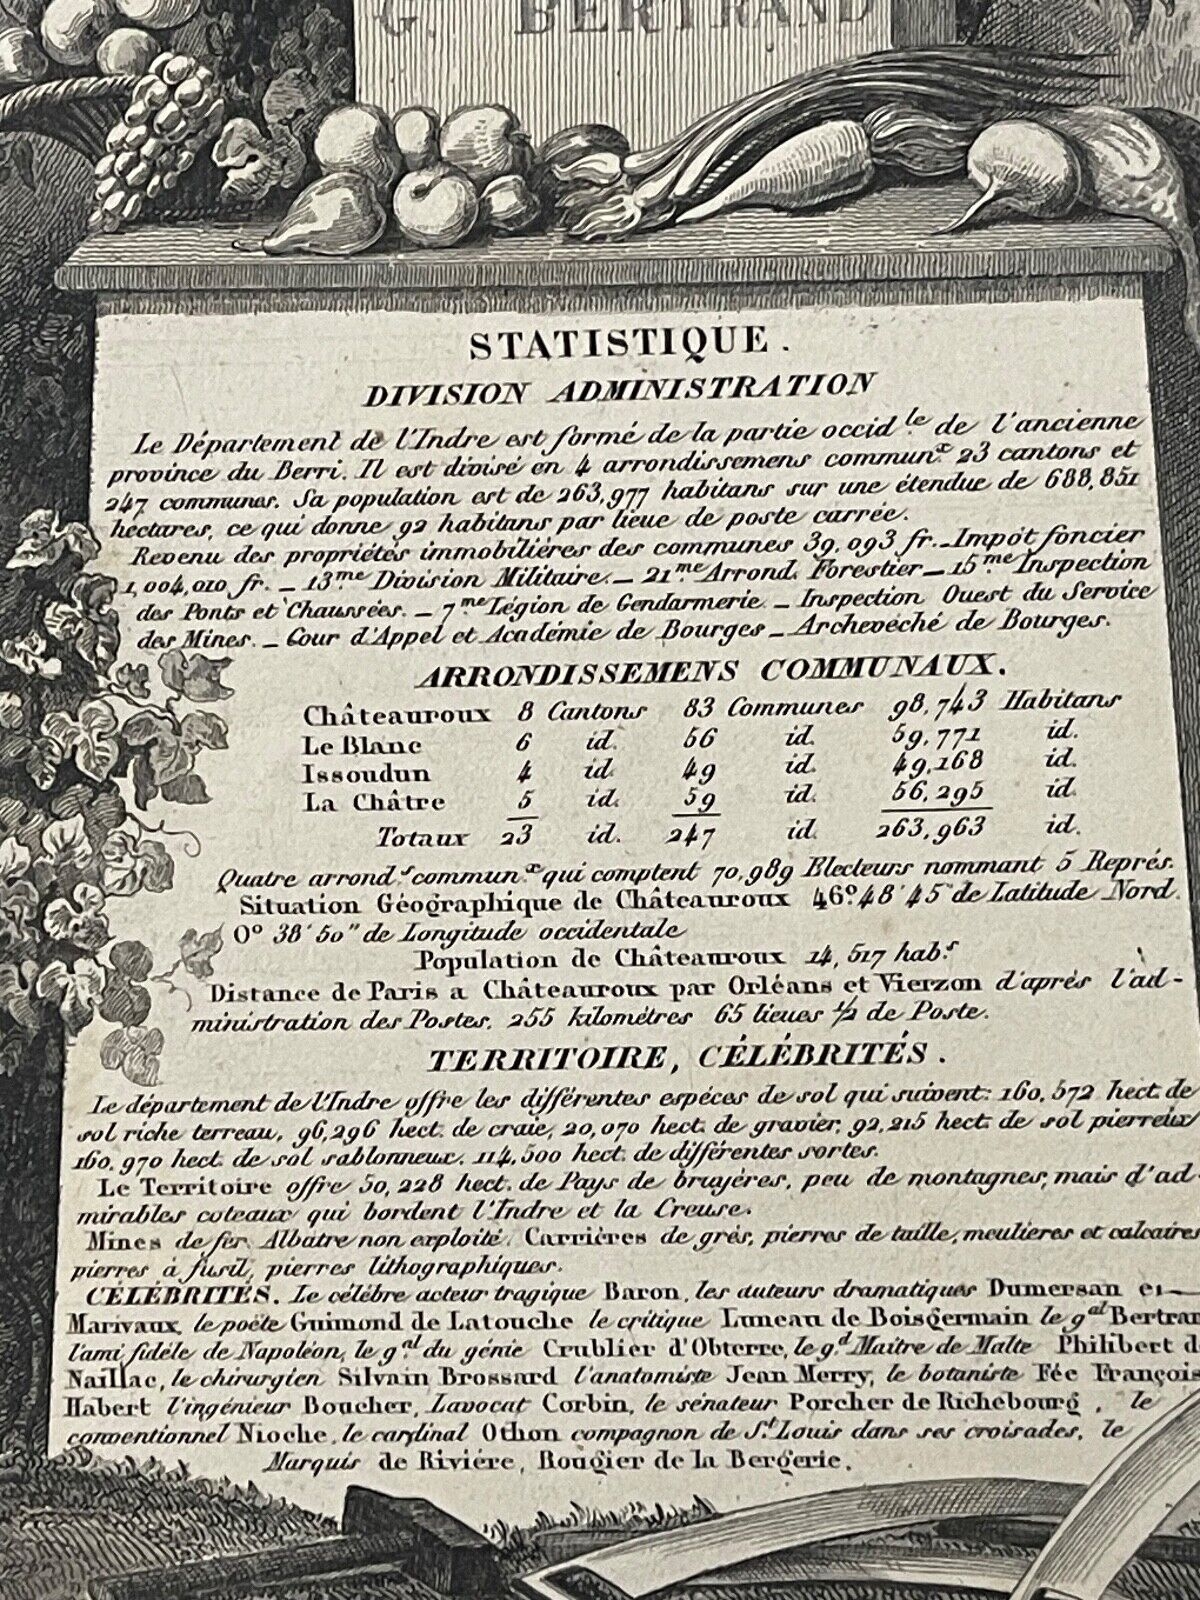 G. BERTRAND
STATISTIQUE.
DIVISION ADMINISTRATION
Le Département de l'Indre est formé de la partie occid.le de l'ancienne
province du Berri. Il est divisé en 4 arrondissemens commun.x 23 cantons et
247 communes. Sa population est de 263,977 habitans sur une étendue de 688,851
hectares, ce qui donne 92 habitans par lieue de poste carrée.
Revenu des propriétés immobilières des communes 39,093 fr. _ Impôt foncier
1,004,010 fr. _ 13.me Division Militaire. _ 21.me Arrond. Forestier _ 15.me Inspection
des Ponts et Chaussées. _ 7.me Légion de Gendarmerie _ Inspection Ouest du Service
des Mines. _ Cour d'Appel et Académie de Bourges _ Archevêché de Bourges.
ARRONDISSEMENS COMMUNAUX.
Châteauroux 8 Cantons 83 Communes 98,743 Habitans
Le Blanc 6 id. 56 id. 59,771 id.
Issoudun 4 id. 49 id. 49,168 id.
La Châtre 5 id. 59 id. 56,295 id.
Totaux 23 id. 247 id. 263,963 id.
Quatre arrond.s commun.x qui comptent 70,989 Electeurs nommant 5 Représ.
Situation Géographique de Châteauroux 46° 48' 45" de Latitude Nord.
0° 38' 50" de Longitude occidentale
Population de Châteauroux 14,517 hab.s
Distance de Paris a Châteauroux par Orléans et Vierzon d'après l'ad-
ministration des Postes, 255 kilomètres 65 lieues 1/2 de Poste.
TERRITOIRE, CÉLÉBRITÉS.
Le département de l'Indre offre les différentes espèces de sol qui suivent: 160,572 hect. de
sol riche terreau, 96,296 hect. de craie, 20,070 hect. de gravier, 92,215 hect. de sol pierreux
160,970 hect. de sol sablonneux, 114,500 hect. de différentes sortes.
Le Territoire offre 50,228 hect. de Pays de bruyères, peu de montagnes, mais d'ad-
mirables coteaux qui bordent l'Indre et la Creuse.
Mines de fer, Albâtre non exploité. Carrières de grès, pierres de taille, meulières et calcaires
pierres à fusil, pierres lithographiques.
CÉLÉBRITÉS. Le célèbre acteur tragique Baron, les auteurs dramatiques Dumersan et
Marivaux, le poëte Guimond de Latouche le critique Luneau de Boisgermain le g.al Bertran
l'ami fidèle de Napoléon, le g.al du génie Crublier d'Obterre, le g.d Maître de Malte Philibert d
Naillac, le chirurgien Silvain Brossard l'anatomiste Jean Merry, le botaniste Fée François
Habert l'ingénieur Boucher, Lavocat Corbin, le sénateur Porcher de Richebourg, le
conventionnel Nioche, le cardinal Othon compagnon de S.t Louis dans ses croisades, le
Marquis de Rivière, Rougier de la Bergerie.